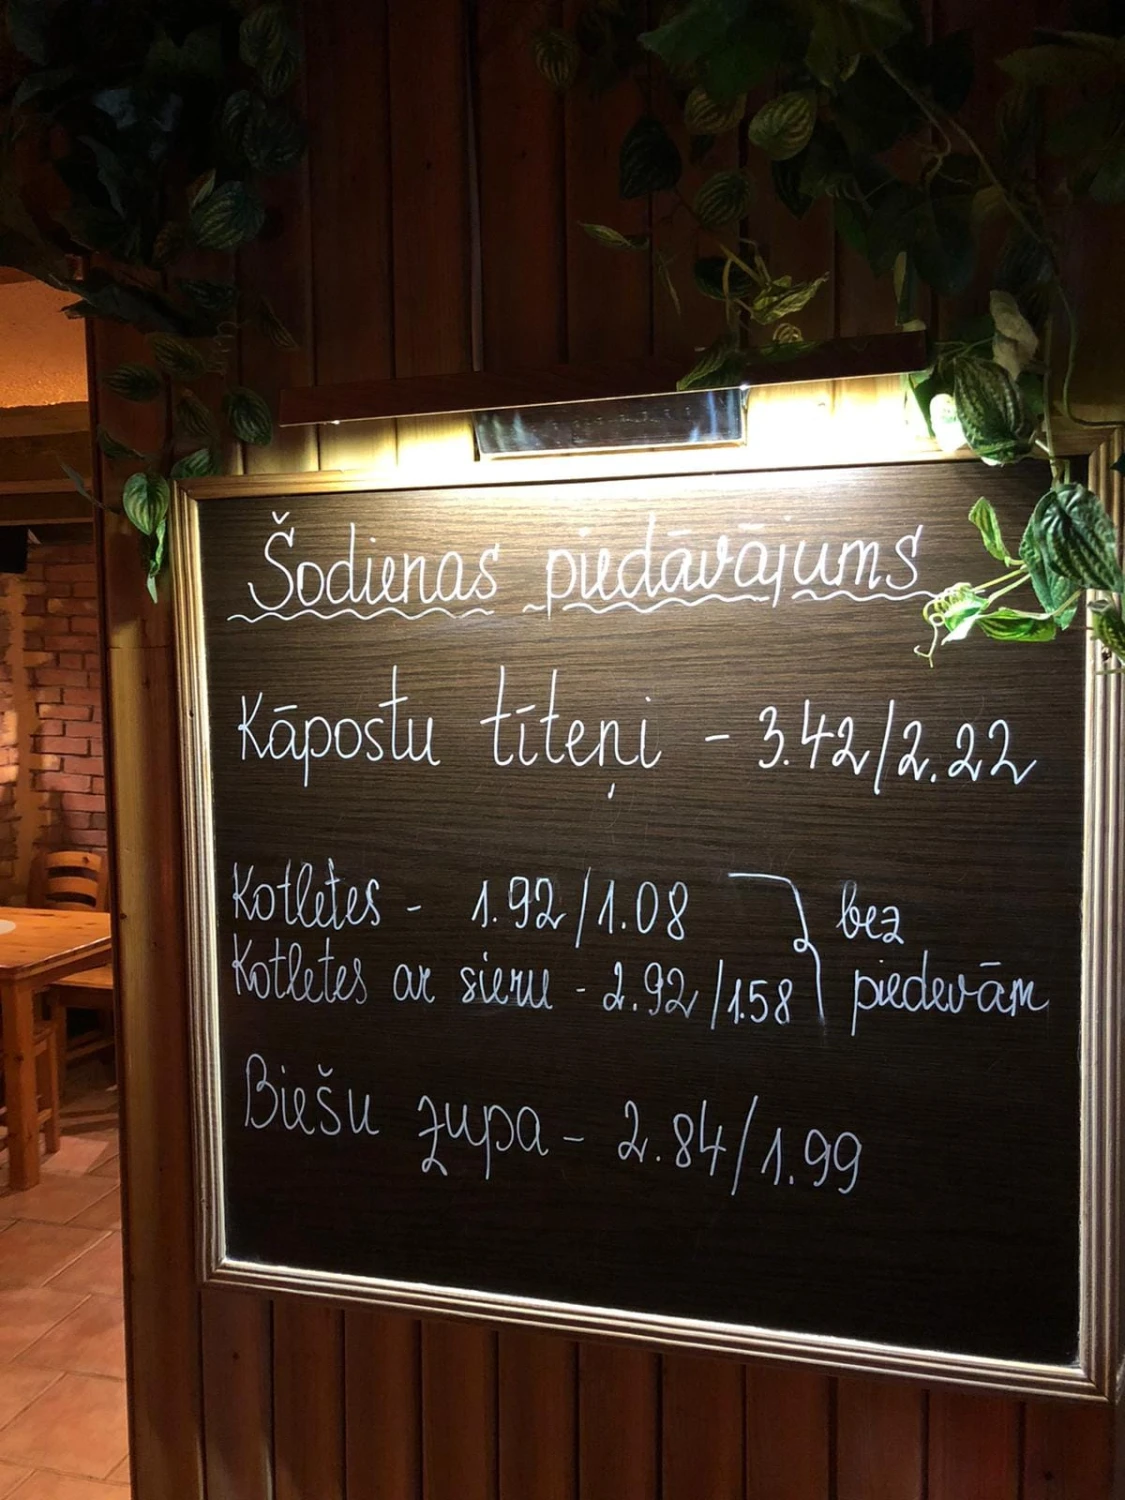 Šodienas piedāvājums
Kāpostu tīteņi - 3.42/2.22
Kotletes - 1.92/1.08
Kotletes ar sieru - 2.92/1.58
bez
piedevām
Biešu zupa - 2.84/1.99